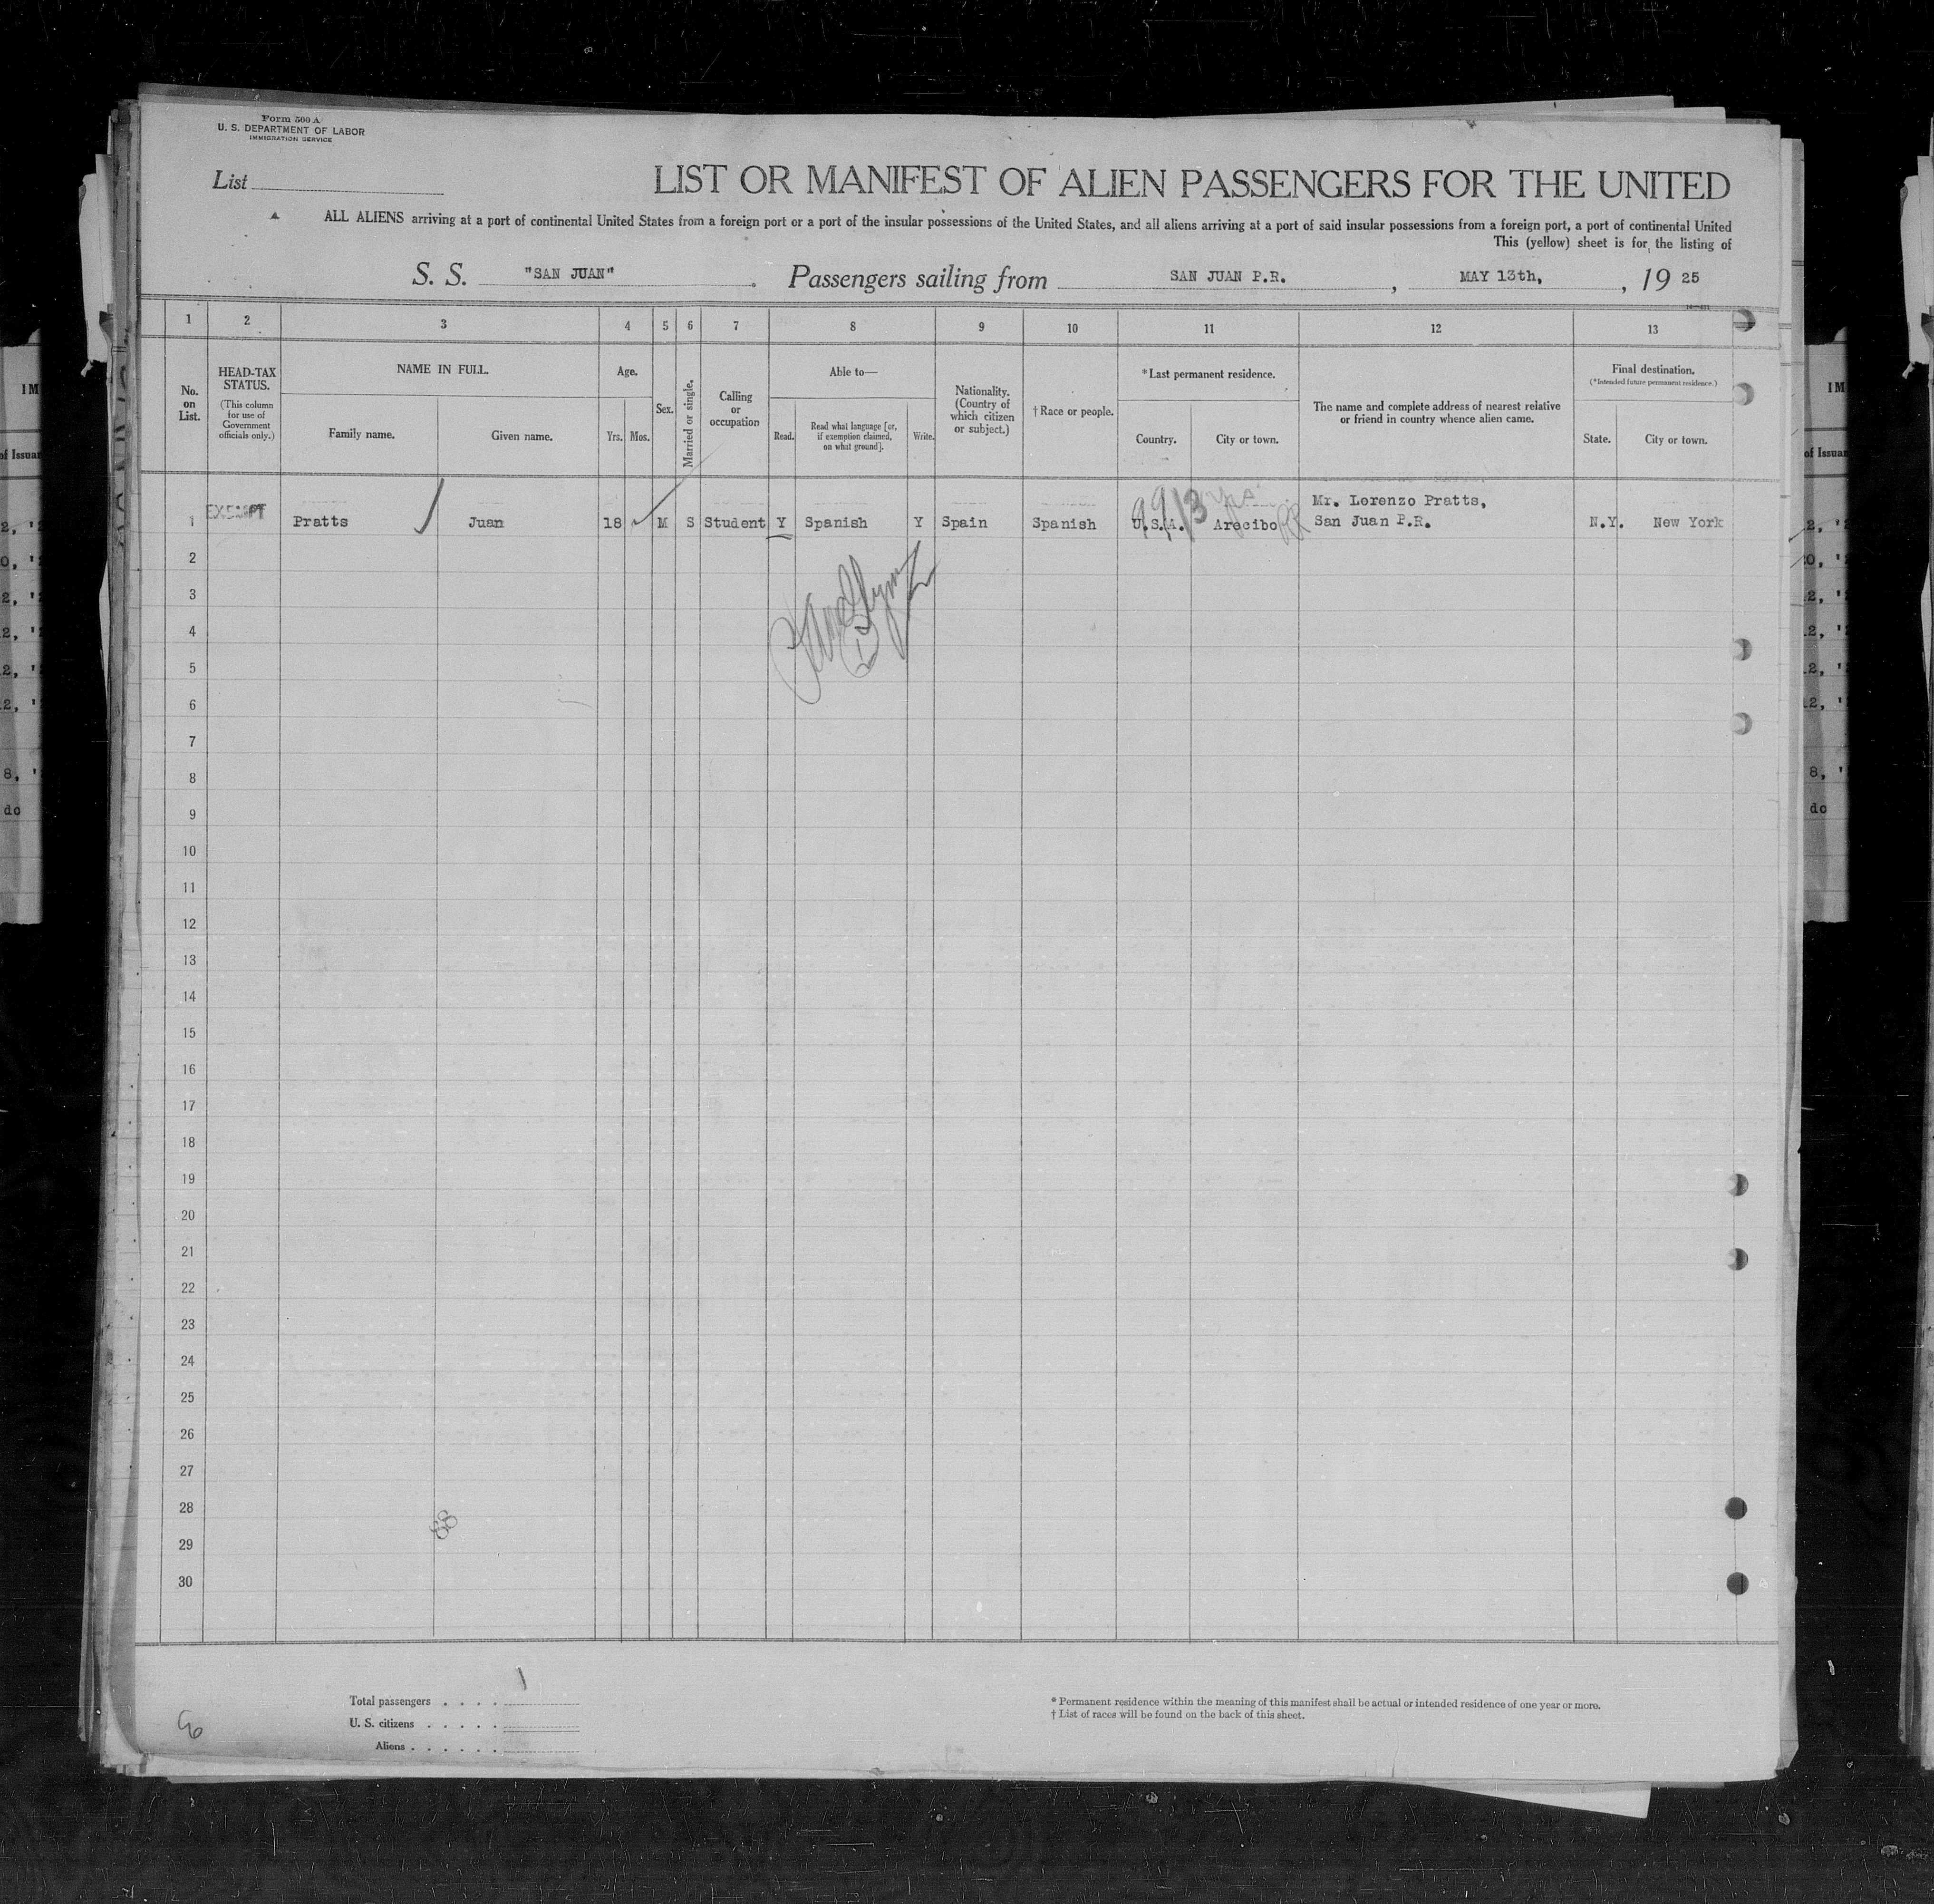 Form 500 A
U. S. DEPARTMENT OF LABOR
IMMIGRATION SERVICE
List
LIST OR MANIFEST OF ALIEN PASSENGERS FOR THE UNITED
ALL ALIENS arriving at a port of continental United States from a foreign port or a port of the insular possessions of the United States, and all aliens arriving at a port of said insular possessions from a foreign port, a port of continental United
This (yellow) sheet is for the listing of
S. S. "SAN JUAN" Passengers sailing from SAN JUAN P.R. , MAY 13th, , 19 25
1 2 3 4 5 6 7 8 9 10 11 12 13
No. on List.
HEAD-TAX STATUS.
(This column for use of Government officials only.)
NAME IN FULL.
Family name. Given name.
Age.
Yrs. Mos.
Sex.
Married or single.
Calling or occupation
Able to—
Read.
Read what language [or, if exemption claimed, on what ground].
Write.
Nationality. (Country of which citizen or subject.)
† Race or people.
*Last permanent residence.
Country. City or town.
The name and complete address of nearest relative or friend in country whence alien came.
Final destination.
(*Intended future permanent residence.)
State. City or town.
Mr. Lorenzo Pratts,
1 EXEMPT Pratts Juan 18 M S Student Y Spanish Y Spain Spanish U.S.A. Arecibo San Juan P.R. N.Y. New York
2
3
4
5
6
7
8
9
10
11
12
13
14
15
16
17
18
19
20
21
22
23
24
25
26
27
28
88
29
30
Total passengers . . . . 1
U. S. citizens . . . . .
Aliens . . . . . .
* Permanent residence within the meaning of this manifest shall be actual or intended residence of one year or more.
† List of races will be found on the back of this sheet.